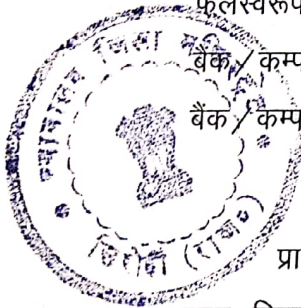 फलस्वरूप
बैंक / कम्प
बैंक / कम्प
न्यायालय जिला
सिरोही (राज०)
प्रा